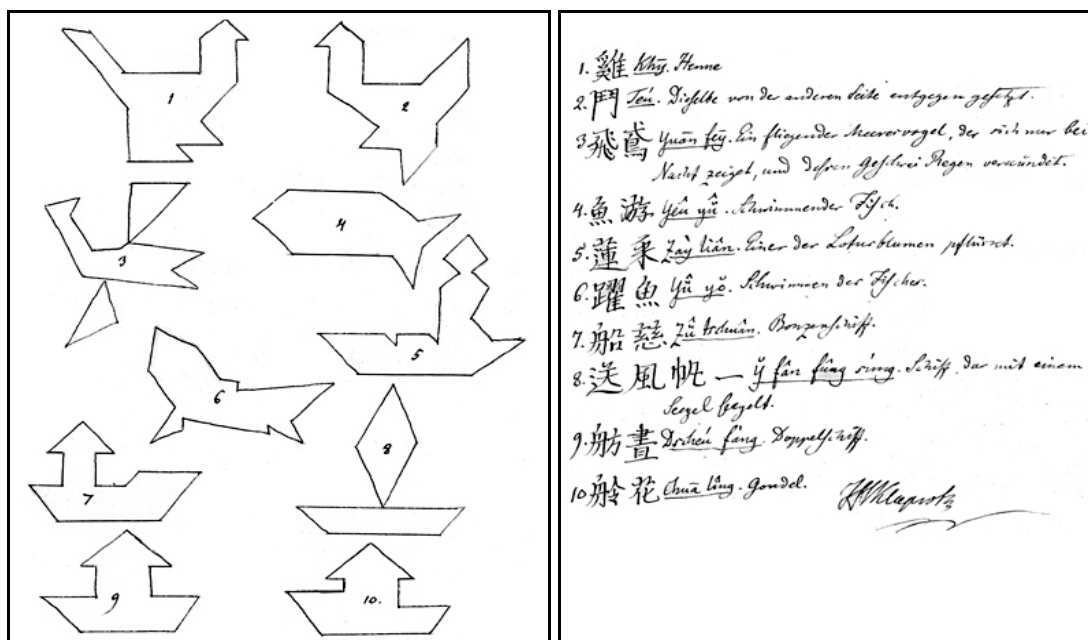 1
2
3
4
5
6
7
8
9
10.
1. 雞 Khy. Henne
2. 鬥 Teú. Dieselbe von der anderen Seite entgegen gesetzt.
3 飛鳶 Yuān fēy. Ein fliegender Meeresvogel, der sich nur bei
Nacht zeiget, und dessen Geschrei Regen verkündet.
4. 魚游 Yêu yû. Schwimmender Fisch.
5. 蓮采 Zày liân. Einer der Lotusblumen pflückt.
6. 躍魚 Yû yŏ. Schwimmen der Fischer.
7. 船慈 Zû tschuân. Bonzenschiff.
8. 送風帆一 fân fūng Schiff, das mit einem
Seegel seegelt.
9. 舫晝 Dscheú fàng. Doppelschiff.
10 舲花 Chuā lîng. Gondel.
Klaproth